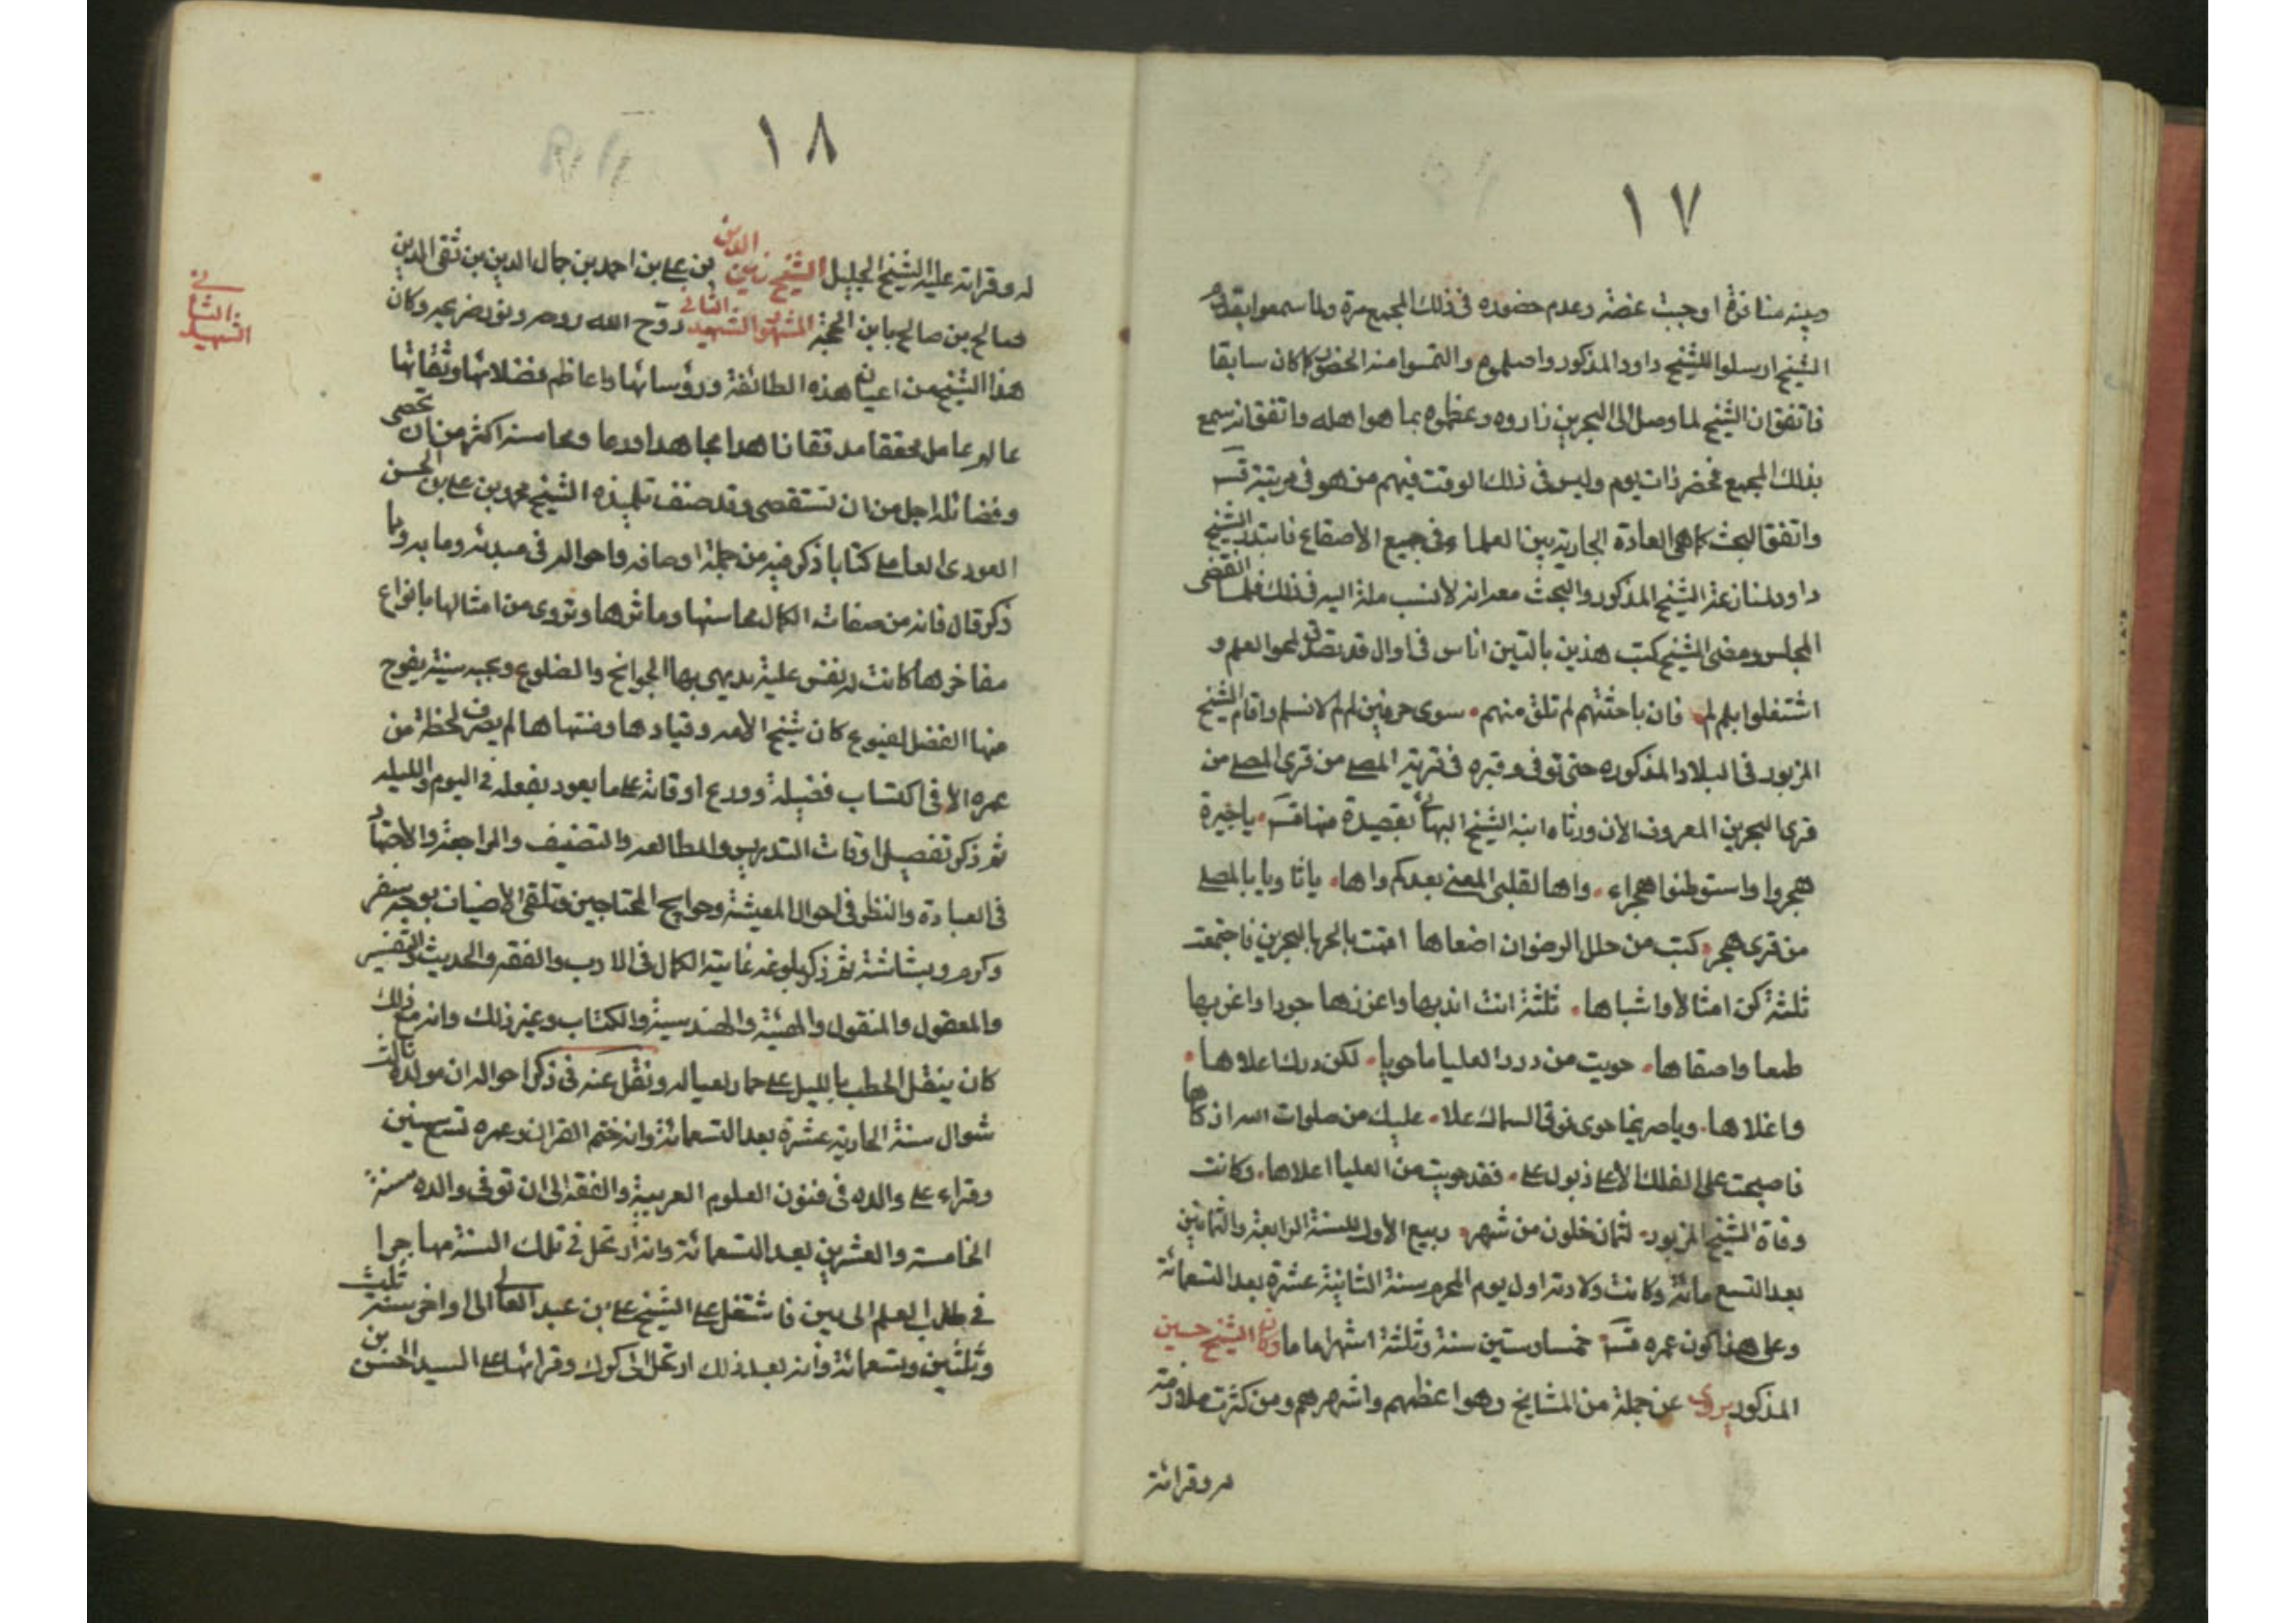 ١٧
وبينه منافرة اوجبت غضه وعدم حضوره فى ذلك المجمع مرة ولما سمعوا بقدوم
الشيخ ارسلوا للشيخ داود المذكور واصلحوهم والتمسوا منه الحضور كما كان سابقا
فاتفق ان الشيخ لما وصل الى البحرين زاروه وعظموه بما هو اهله واتفق انه سمع
بذلك المجمع فحضر ذات يوم وليس فى ذلك الوقت فيهم من هو فى مرتبته قسه
واتفق البحث كما هى العادة الجارية بين العلماء فى جميع الأصقاع فابتدر الشيخ
داود لمنازعة الشيخ المذكور والبحث معه انه لأنسب مانة اليه فى ذلك فلما انقضى
المجلس ومضى الشيخ كتب هذين بالتين اناس فى اوال قد تصدوا لمحو العلم و
اشتغلوا بلم لم فان باحثتهم لم تلق منهم سوى حرفين لم لم لانسلم واقام الشيخ
المزبور فى البلاد المذكوره حتى توفى وقبره فى قرية المصلى من قرى المصلى من
قرى البحرين المعروف الان ورثاه ابنه الشيخ البهائى بقصيدة منها قسه ياخيرة
هجروا واستوطنوا هجراء واها لقلبى المعنى بعدكم واها ياثاويا بالمصلى
من قرى هجر كتب من حلل الرضوان اضعاها اقمت بالحر بالبحرين فاجتمعت
ثلثة كن امثالا واشباها ثلثة انت انديها واعزنها جودا واعذبها
طعما واصفاها حويت من درر العليا ما حويا لكن درك اعلاها
واغلاها وياضريحا حوى فوق السماك علا عليك من صلوات الله ازكاها
فاصبحت على الفلك الأعلى ذيول على فقد حويت من العليا اعلاها وكانت
وفاة الشيخ المزبور لثمان خلون من شهر ربيع الأول للسنة الرابعة والثمانين
بعد التسع مائة وكانت ولادته اول يوم المحرم سنة الثانية عشرة بعد التسعمائة
وعلى هذا كون عمره قسه خمسا وستين سنة وثلثة اشهر اما ما وكان الشيخ حسين
المذكور يروى عن جملة من المشايخ وهو اعظمهم واشهرهم ومن كثرت ملازمته
له وقرائته
١٨
له وقرائته عليه الشيخ الجليل الشيخ زين الدين بن على بن احمد بن جمال الدين بن تقى الدين
صالح بن صالح بابن الحجة المشهور الشهيد الثانى روّح الله روحه ونور ضريحه وكان
الشهيد الثانى
هذا الشيخ من اعيان هذه الطائفة ورؤسائها واعاظم فضلائها وثقاتها
عالم عامل محققا مدققا زاهدا مجاهدا ورعا ومحاسنه اكثر من ان تحصى
وفضائله اجل من ان تستقصى وقد صنف تلميذه الشيخ محمد بن على بن الحسن
العودى العاملى كتابا ذكر فيه من جملة اوصافه واحواله فى مبدئه وما به وبما
ذكر قال فانه من صفات الكمال محاسنها ومأثرها وتروى من امثالها بانواع
مفاخرها كانت له نفس علية يديهى بها الجوانح والضلوع وسجيه سنية يفوح
منها الفضل لضيوع كان شيخ الأمه وقيادها ومنتهاها لم يصرف لحظة من
عمره الا فى اكتساب فضيلة ووزع اوقاته على ما يعود بفعله فى اليوم والليله
ثم ذكر تفصيل اوقات التدريس والمطالعه والتصنيف والمراجعة والاجتهاد
فى العبادة والنظر فى احوال المعيشة وحوايج المحتاجين وتلقى الاضياف بوجه سفر
وكرم وبشاشة ثم ذكر بلوغه غاية الكمال فى الادب والفقه والحديث والتفسير
والمعقول والمنقول والهيئة والهندسية والكتاب وغير ذلك وانه مع ذلك
كان ينقل الحطب بالليل على حمار لعياله ونقل عنه فى ذكر احواله ان مولده ثالث
شوال سنة الحادية عشرة بعد التسعمائة وانه ختم القران وعمره تسع سنين
وقراء على والده فى فنون العلوم العربية والفقه الى ان توفى والده سنة
الخامسه والعشرين بعد التسعمائة وانه ارتحل فى تلك السنة مهاجرا
فى طلب العلم الى ميس فاشتغل على الشيخ على بن عبد العالى الى اواخر سنة ثلث
وثلثين وتسعمائة وانه بعد ذلك ارتحل الى كرك وقرائها على السيد الحسن بن